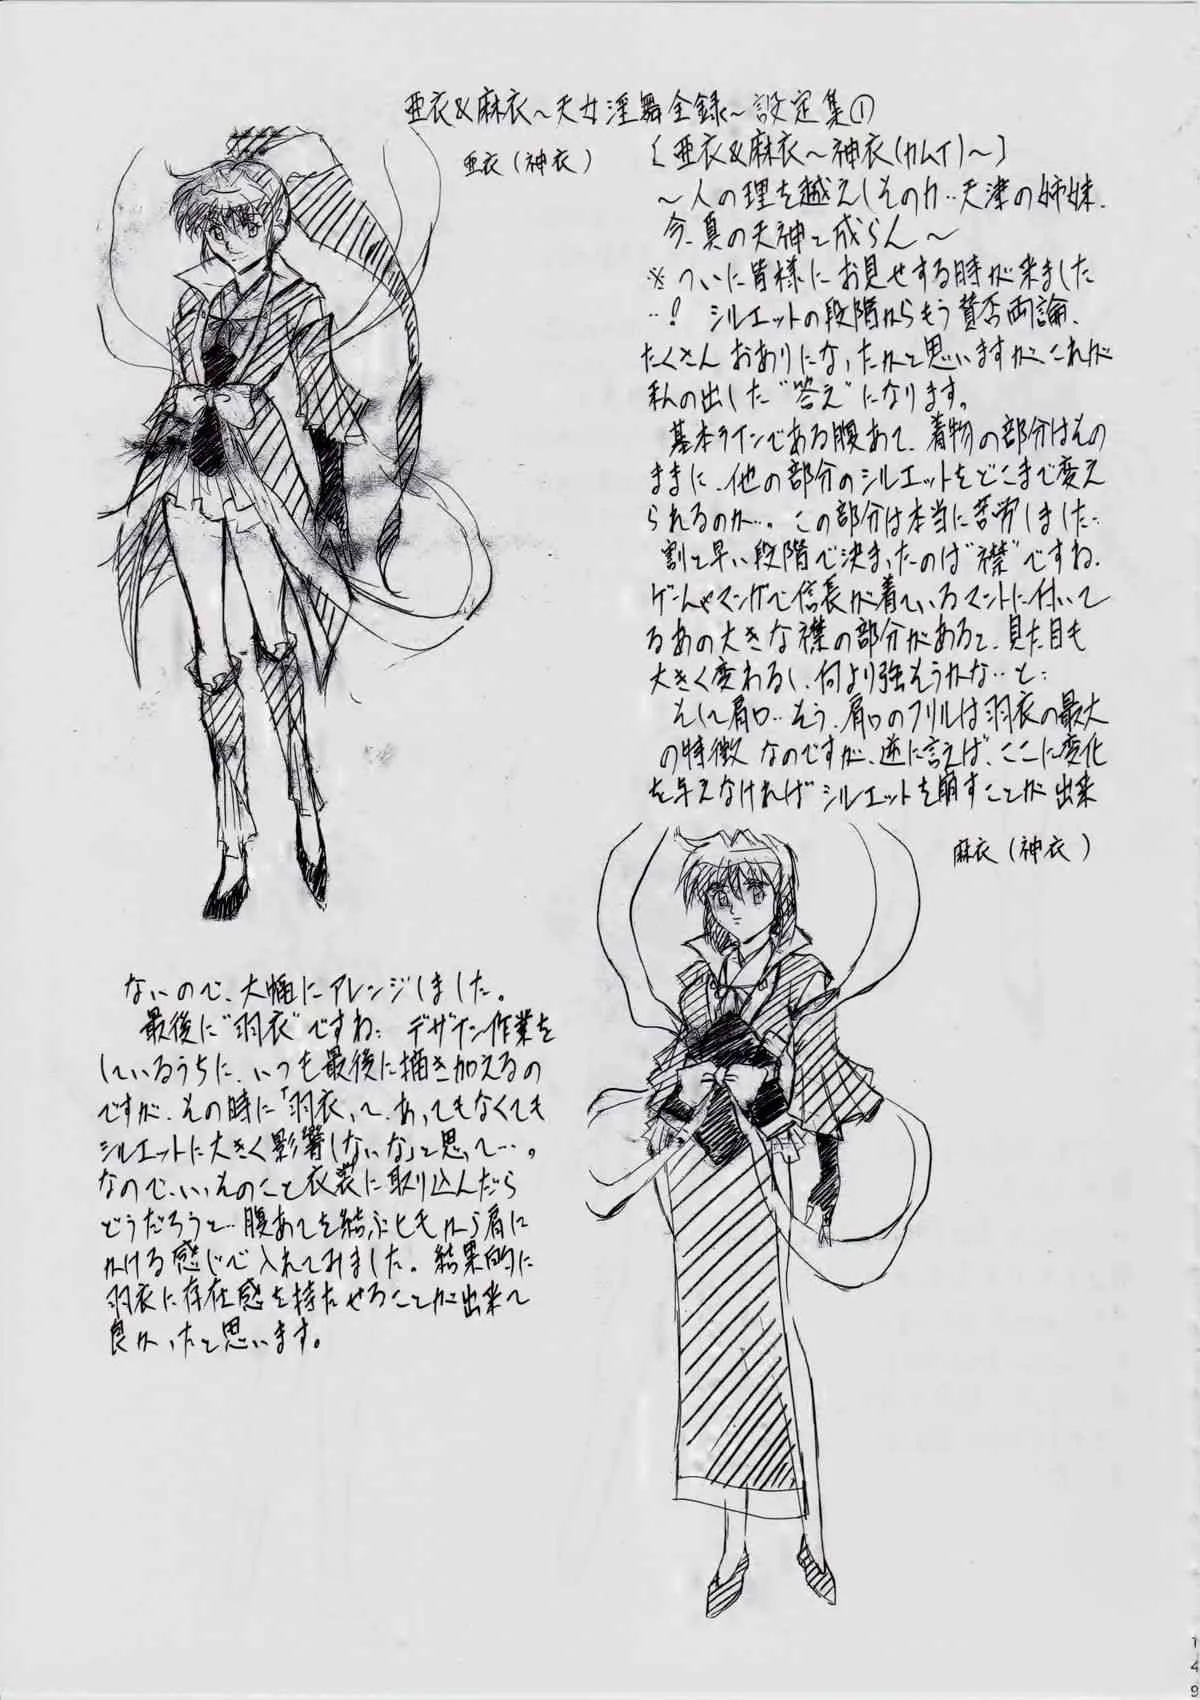 亜衣&麻衣～天女淫舞全録～設定集①
亜衣(神衣)
〔亜衣&麻衣～神衣(カムイ)～〕
～人の理を越えしその力…天津の姉妹、
今、真の天神と成らん～
※ついに皆様にお見せする時が来ました
…! シルエットの段階からもう賛否両論、
たくさんおありになったかと思いますが、これが
私の出した"答え"になります。
基本ラインである腹あて、着物の部分はその
ままに、他の部分のシルエットをどこまで変え
られるのか…。この部分は本当に苦労しました…
割と早い段階で決まったのは"襟"ですね。
ゲームやマンガで信長が着ているマントに付いて
るあの大きな襟の部分があると、見た目も
大きく変わるし、何より強そうかな…と…
そして肩口…そう、肩口のフリルは羽衣の最大
の特徴なのですが、逆に言えば、ここに変化
を与えなければシルエットを崩すことが出来
麻衣(神衣)
ないので、大幅にアレンジしました。
最後に"羽衣"ですね… デザイン作業を
しているうちに、いつも最後に描き加えるの
ですが、その時に「羽衣って、あってもなくても
シルエットに大きく影響しないな」と思って…。
なので、いっそのこと衣装に取り込んだら
どうだろうと…腹あてを結ぶヒモから肩に
かける感じで入れてみました。結果的に
羽衣に存在感を持たせることが出来て
良かったと思います。
149